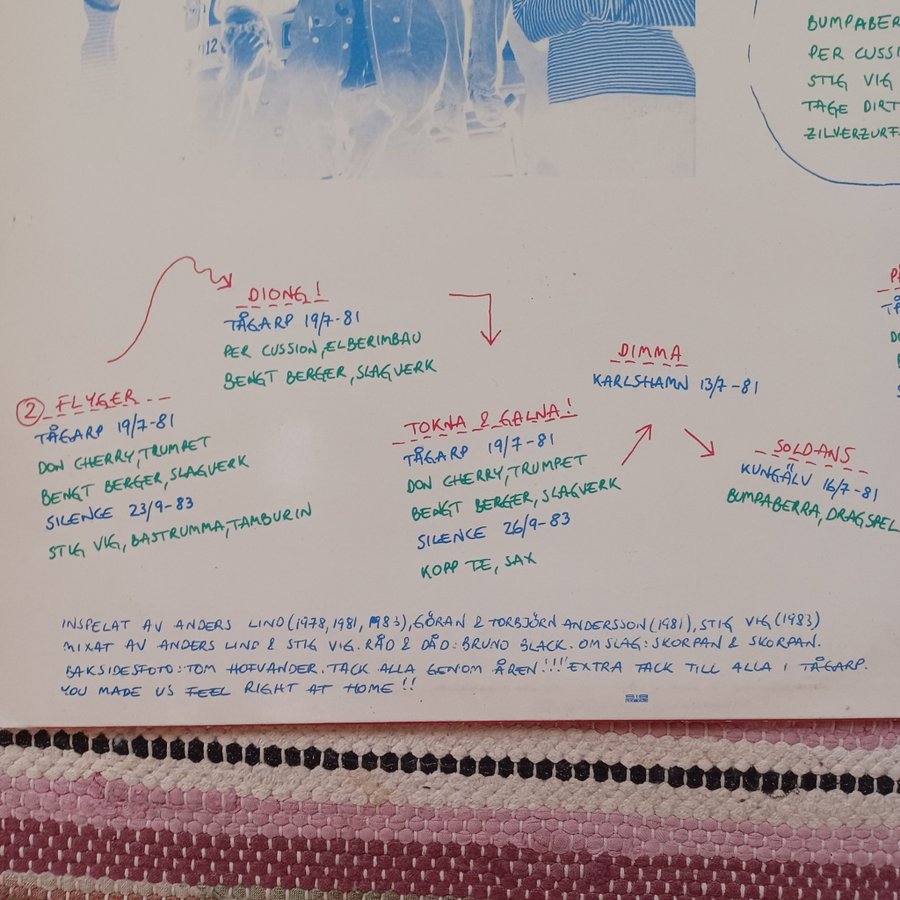 112
BUMPABER
PER CUSSI
STIG VIG
TAGE DIRT
ZILVERZURF
DIONG!
TÅGARP 19/7-81
PER CUSSION, ELBERIMBAU
BENGT BERGER, SLAGVERK
② FLYGER
TÅGARP 19/7-81
DON CHERRY, TRUMPET
BENGT BERGER, SLAGVERK
SILENCE 23/9-83
STIG VIG, BASTRUMMA, TAMBURIN
TOKNA & GALNA!
TÅGARP 19/7-81
DON CHERRY, TRUMPET
BENGT BERGER, SLAGVERK
SILENCE 26/9-83
KOPP TE, SAX
DIMMA
KARLSHAMN 13/7-81
SOLDANS
KUNGÄLV 16/7-81
BUMPABERRA, DRAGSPEL
INSPELAT AV ANDERS LIND (1978, 1981, 1983), GÖRAN & TORBJÖRN ANDERSSON (1981), STIG VIG (1983)
MIXAT AV ANDERS LIND & STIG VIG. RÅD & DÅD: BRUNO BLACK. OMSLAG: SKORPAN & SKORPAN.
BAKSIDESFOTO: TOM HOFVANDER. TACK ALLA GENOM ÅREN!!!! EXTRA TACK TILL ALLA I TÅGARP.
YOU MADE US FEEL RIGHT AT HOME!!